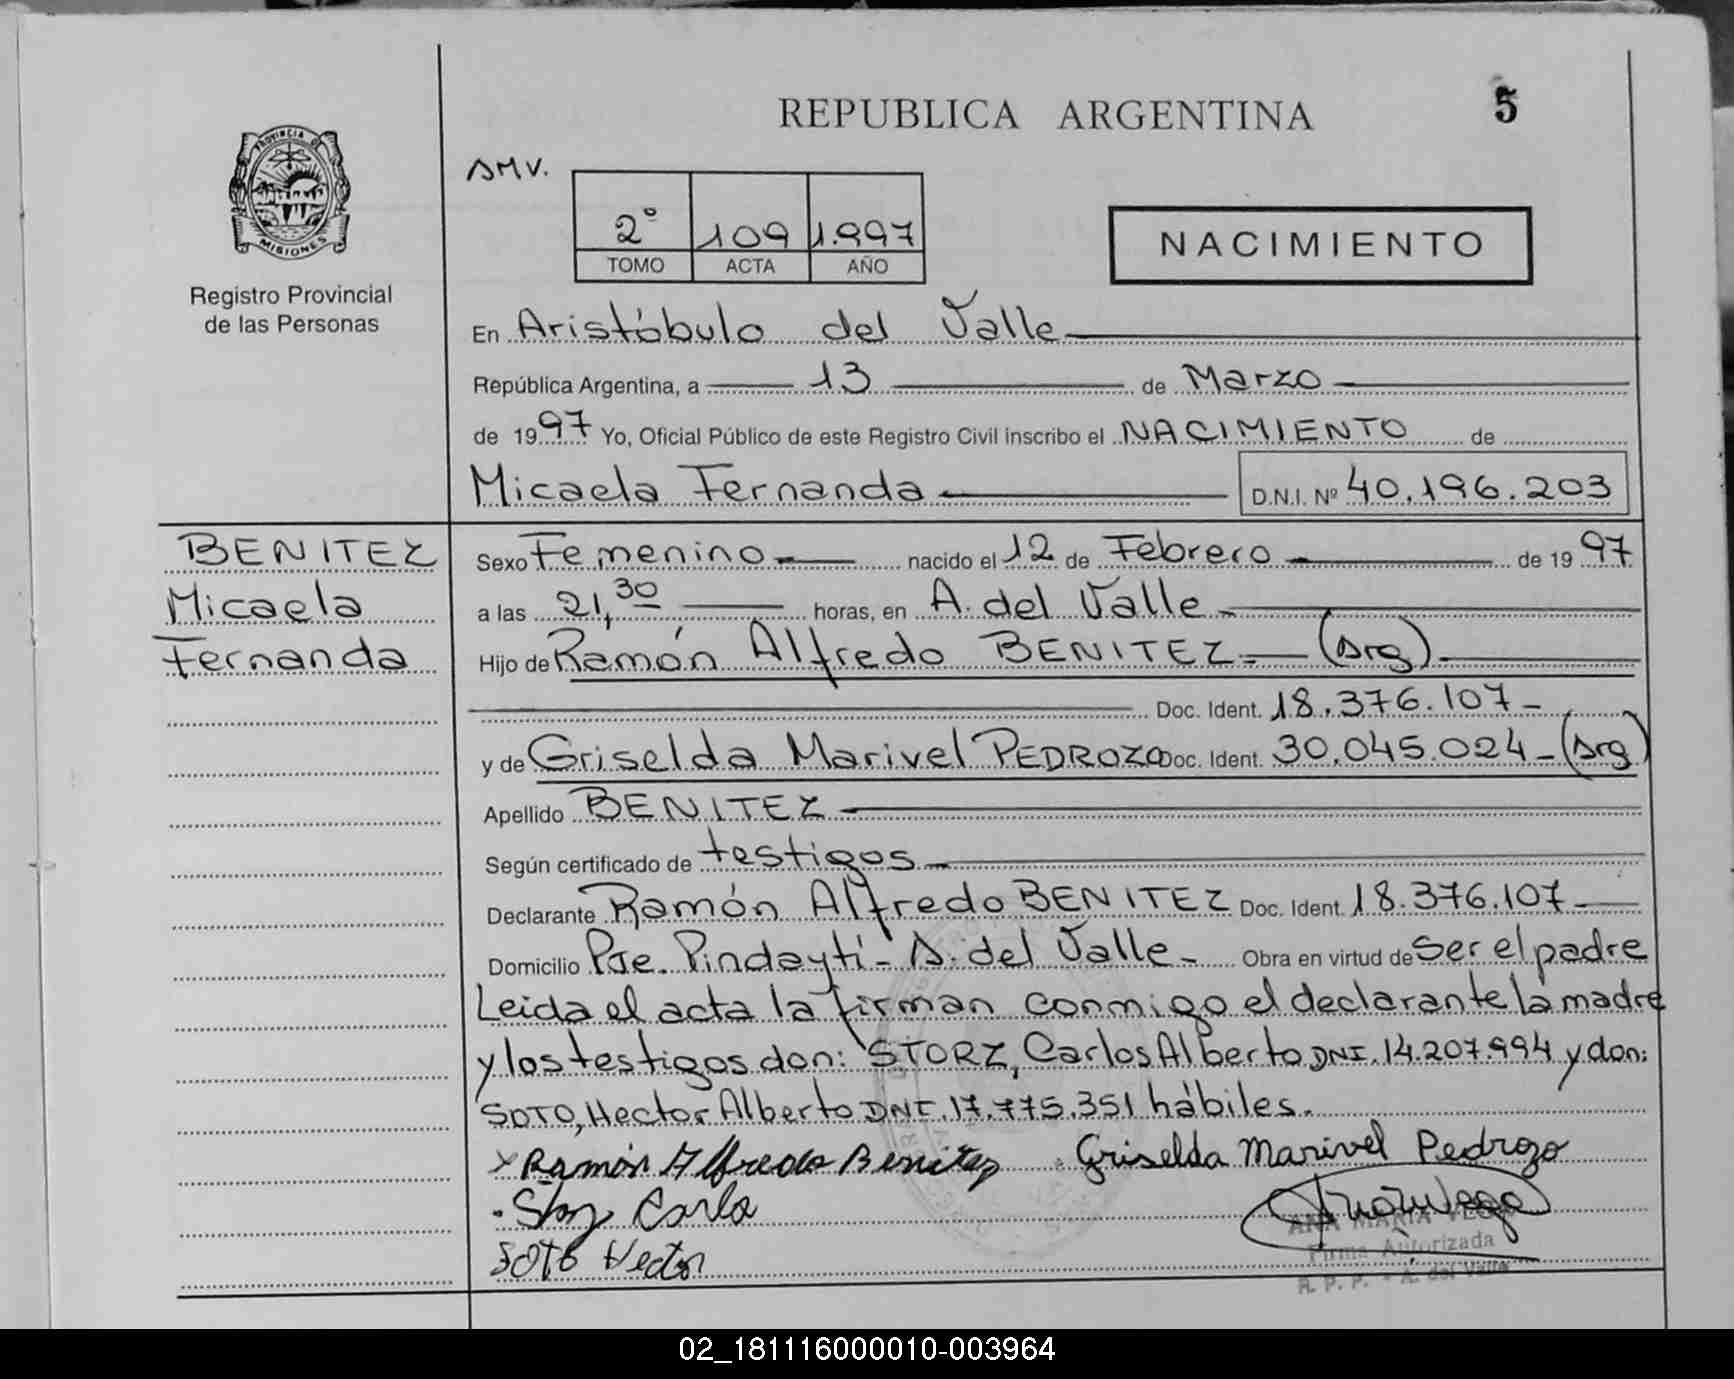 REPUBLICA ARGENTINA
5
PROVINCIA DE
MISIONES
Registro Provincial
de las Personas
AMV.
2° 109 1.997
TOMO ACTA AÑO
NACIMIENTO
En Aristóbulo del Valle
República Argentina, a 13 de Marzo
de 1997 Yo, Oficial Público de este Registro Civil inscribo el NACIMIENTO de
Micaela Fernanda D.N.I. Nº 40.196.203
BENITEZ
Micaela
Fernanda
Sexo Femenino nacido el 12 de Febrero de 1997
a las 21,30 horas, en A. del Valle
Hijo de Ramón Alfredo BENITEZ (Arg)
Doc. Ident. 18.376.107
y de Griselda Marivel PEDROZO Doc. Ident. 30.045.024 (Arg)
Apellido BENITEZ
Según certificado de testigos
Declarante Ramón Alfredo BENITEZ Doc. Ident. 18.376.107
Domicilio Pje. Pindaytí - A. del Valle Obra en virtud de Ser el padre
Leida el acta la firman conmigo el declarante la madre
y los testigos don: STORZ, Carlos Alberto DNI. 14.207.994 y don:
SOTO, Hector Alberto DNI. 17.775.351 hábiles.
x Ramón Alfredo Benitez Griselda Marivel Pedrozo
Storz Carlo
SOTO Hector
ANA MARIA VEGA
Firma Autorizada
R. P. P. - A. del Valle
02_181116000010-003964